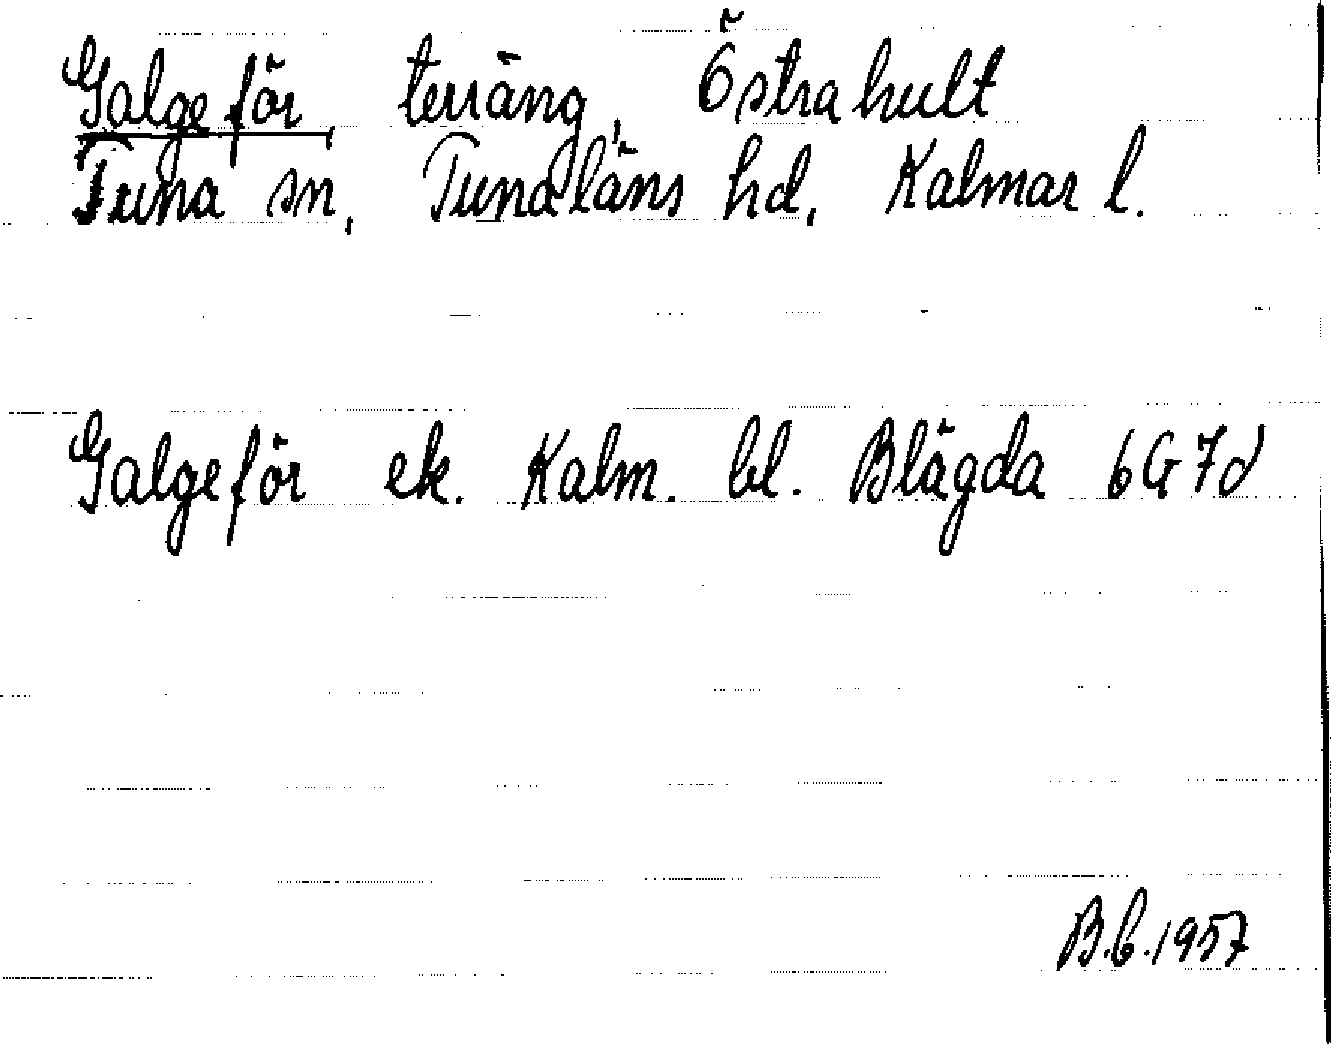 Galgeför, terräng, Östrahult
Tuna sn, Tunaläns hd, Kalmar l.
Galgeför ek. Kalm. bl. Blägda 6G7d
B.G.1957